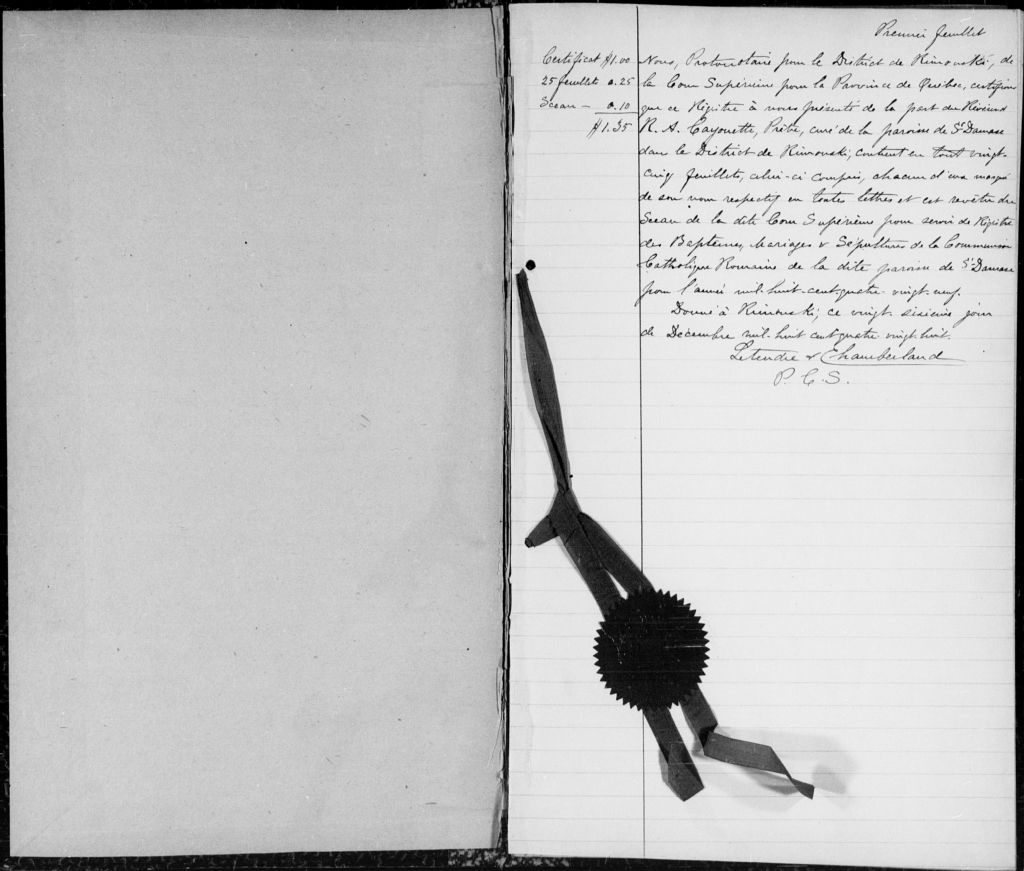 Premier feuillet
Certificat $1.00
25 feuillets 0.25
Sceau — 0.10
$1.35
Nous, Protonotaire pour le District de Rimouski, de
la Cour Supérieure pour la Province de Québec, certifions
que ce Régistre à nous présenté de la part du Révérend
R. A. Cayouette, Prêtre, curé de la paroisse de St Damase
dans le District de Rimouski, contient en tout vingt-
cinq feuillets, celui-ci compris, chacun d'eux marqué
de son nom respectif en toutes lettres et est revêtu du
Sceau de la dite Cour Supérieure pour servir de Régistre
des Baptêmes, Mariages & Sépultures de la Communion
Catholique Romaine de la dite paroisse de St-Damase
pour l'année mil-huit-cent-quatre-vingt-neuf.
Donné à Rimouski, ce vingt-sixième jour
de Décembre mil-huit cent quatre-vingt-huit.
Letendre & Chamberland
P. C. S.